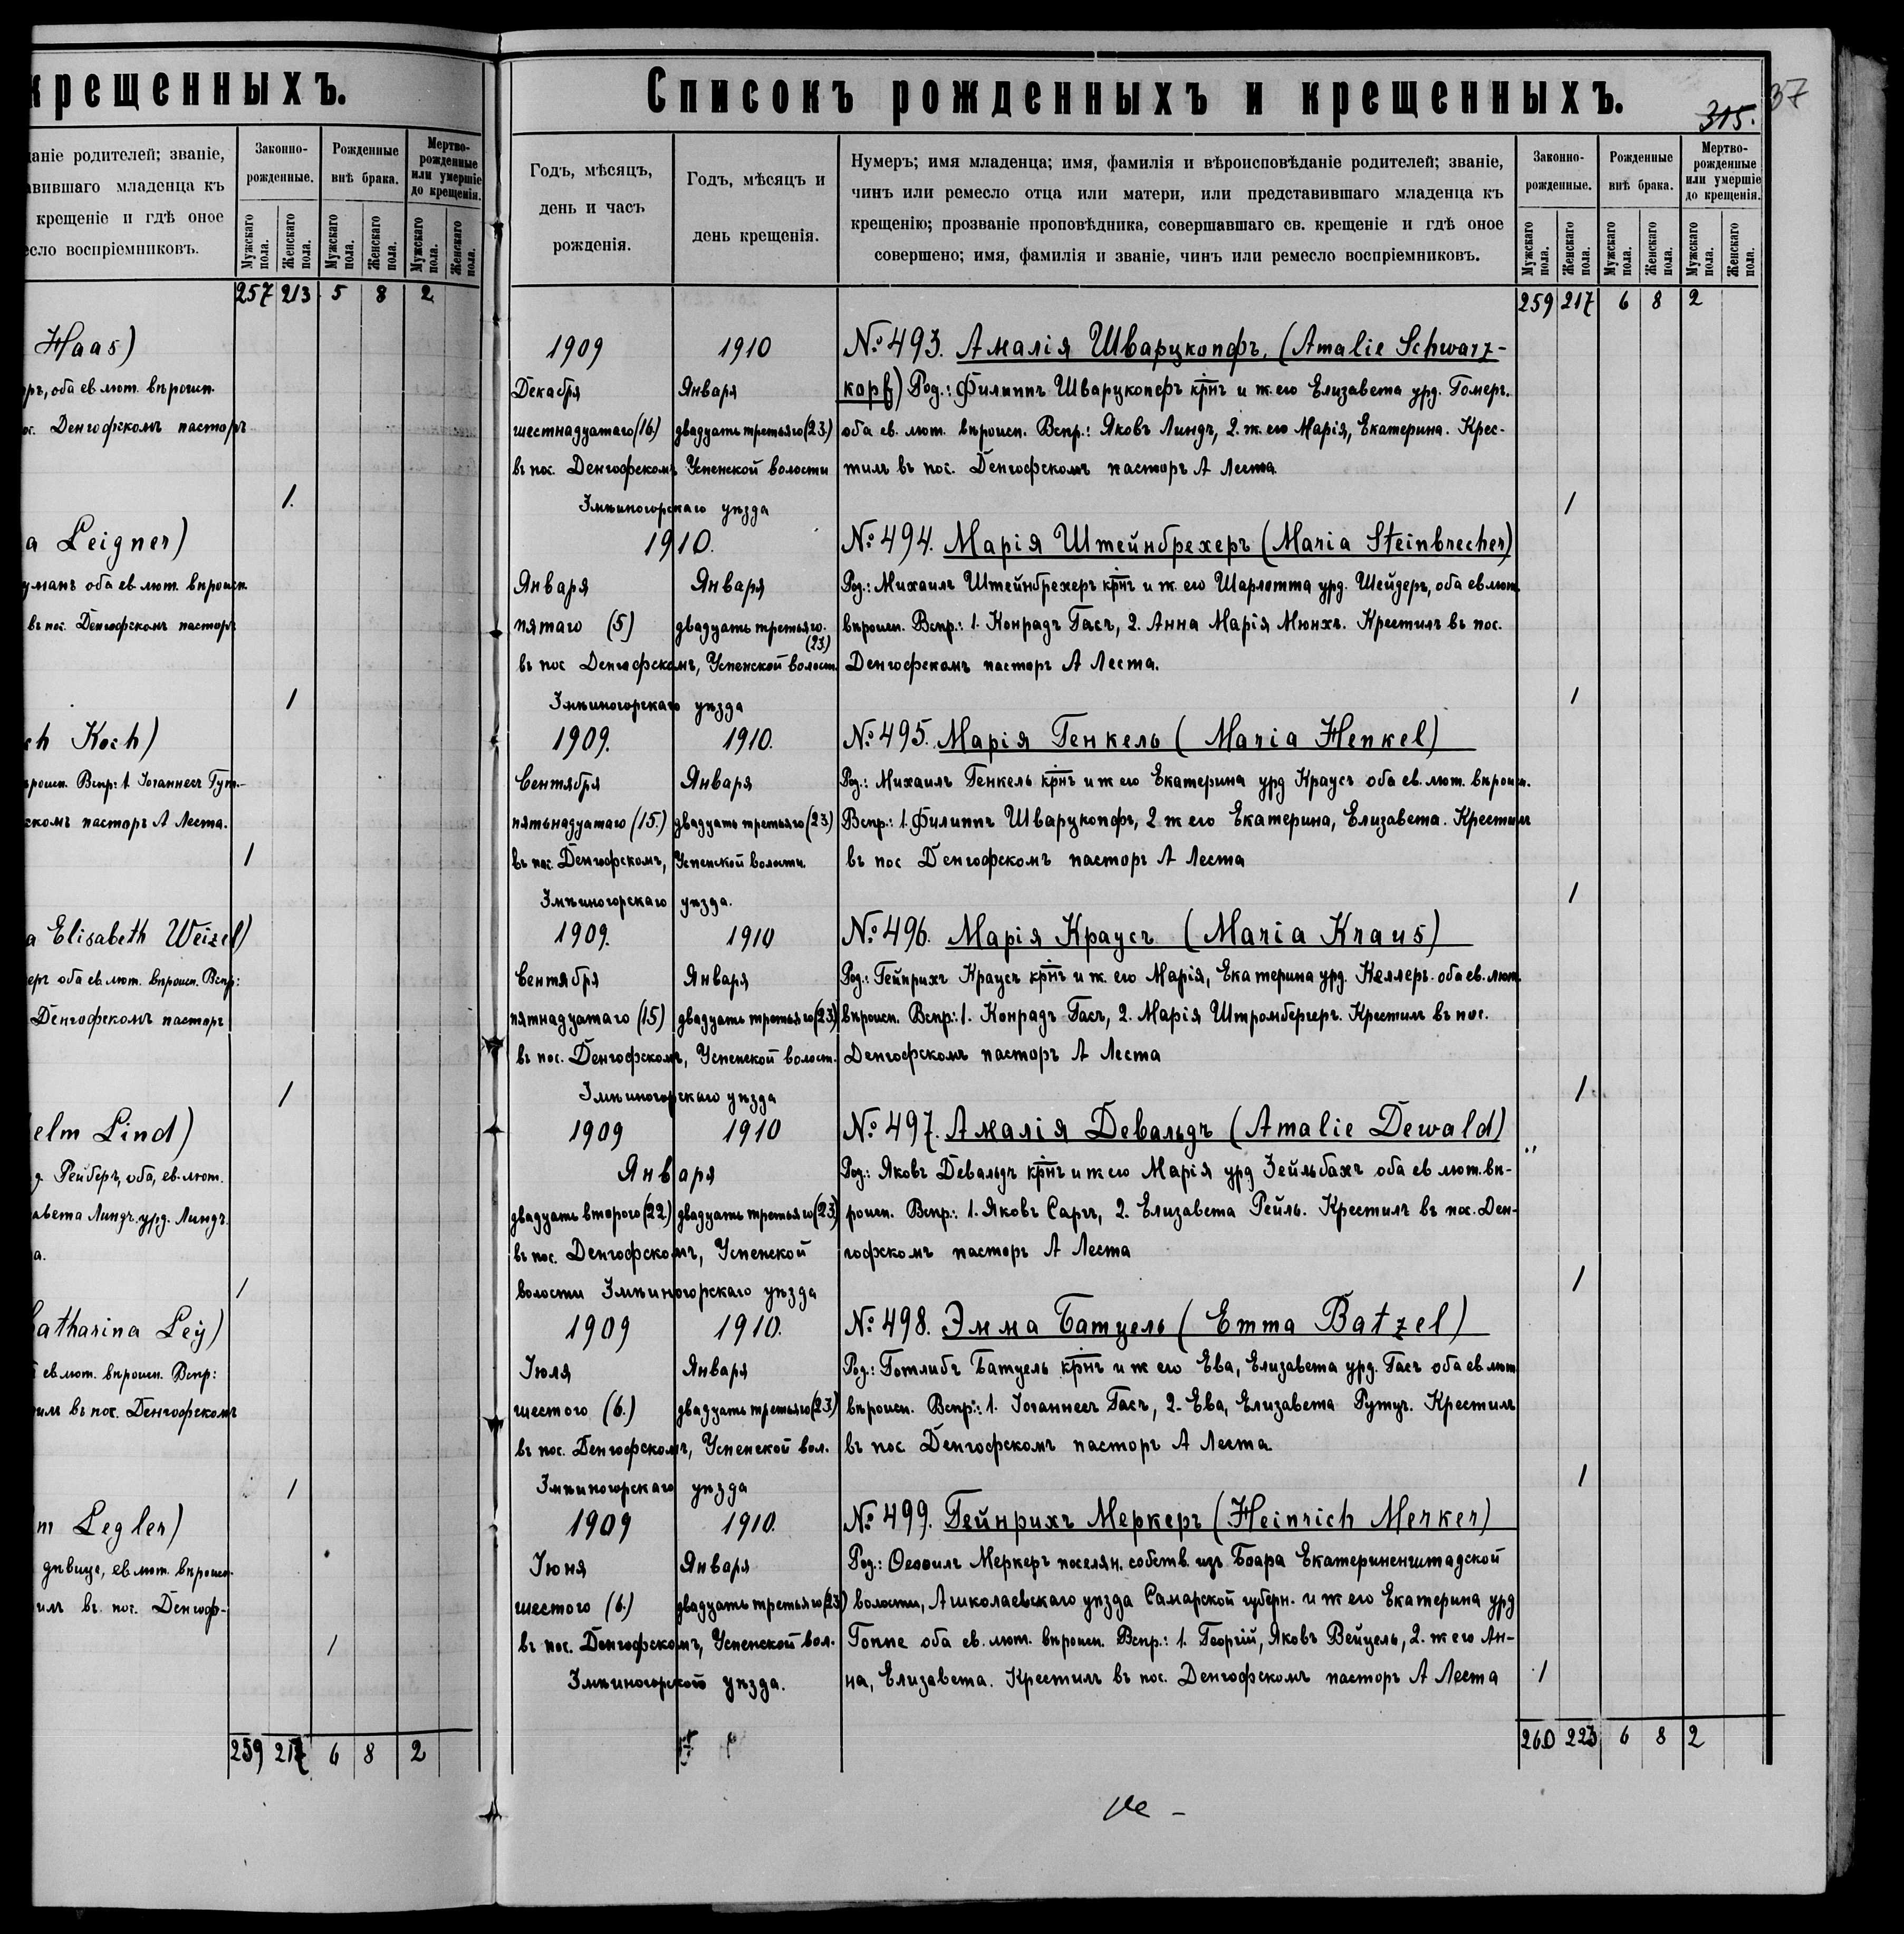 крещенныхъ.
даніе родителей; званіе,
авившаго младенца къ
крещеніе и гдѣ оное
есло воспріемниковъ.
Законно-
рожденные.
Рожденные
внѣ брака.
Мертво-
рожденные
или умершіе
до крещенія.
Мужскаго пола.
Женскаго пола.
Мужскаго пола.
Женскаго пола.
Мужскаго пола.
Женскаго пола.
257 213 5 8 2
Haas)
ръ, оба ев. лют. вѣроисп.
ос. Денгофскомъ пасторъ
1.
a Leigner)
уманъ оба ев. лют. вѣроисп.
въ пос. Денгофскомъ пасторъ
1
ch Koch)
ѣроисп. Вспр: 1. Іоганнесъ Гут-
скомъ пасторъ А Леста.
1
a Elisabeth Weizel)
еръ оба ев. лют. вѣроисп. Вспр:
Денгофскомъ пасторъ
1
elm Lind)
д. Рейберъ, оба, ев. лют.
завета Линдъ урд. Линдъ.
а.
1
Catharina Ley)
ев. лют. вѣроисп. Вспр:
илъ въ пос. Денгофскомъ
1
m Legler)
дѣвица, ев. лют. вѣроисп.
илъ въ пос. Денгоф-
1
259 217 6 8 2
37
Списокъ рожденныхъ и крещенныхъ.
315.
Годъ, мѣсяцъ,
день и часъ
рожденія.
Годъ, мѣсяцъ и
день крещенія.
Нумеръ; имя младенца; имя, фамилія и вѣроисповѣданіе родителей; званіе,
чинъ или ремесло отца или матери, или представившаго младенца къ
крещенію; прозваніе проповѣдника, совершавшаго св. крещеніе и гдѣ оное
совершено; имя, фамилія и званіе, чинъ или ремесло воспріемниковъ.
Законно-
рожденные.
Рожденные
внѣ брака.
Мертво-
рожденные
или умершіе
до крещенія.
Мужскаго пола.
Женскаго пола.
Мужскаго пола.
Женскаго пола.
Мужскаго пола.
Женскаго пола.
259 217 6 8 2
1909 1910 №493. Амалія Шварцкопфъ, (Amalie Schwarz-
Декабря Января kopf) Род.: Филиппъ Шварцкопфъ крнъ и ж. его Елизавета урд. Гомеръ.
шестнадцатаго (16.) двадцать третьяго (23.) оба ев. лют. вѣроисп. Вспр.: Яковъ Линдъ, 2. ж. его Марія, Екатерина. Крес-
въ пос. Денгофскомъ Успенской волости тилъ въ пос. Денгофскомъ пасторъ А Леста.
Змѣиногорскаго уѣзда 1
1910. №494. Марія Штейнбрехеръ (Maria Steinbrecher)
Января Января Род.: Михаилъ Штейнбрехеръ крнъ и ж. его Шарлотта урд. Шейдеръ, оба ев лют.
пятаго (5) двадцать третьяго. (23.) вѣроисп. Вспр.: 1. Конрадъ Гасъ, 2. Анна Марія Мюнхъ. Крестилъ въ пос.
въ пос Денгофскомъ, Успенской волост. Денгофскомъ пасторъ А Леста.
Змѣиногорскаго уѣзда 1
1909. 1910. №495. Марія Генкель (Maria Henkel)
Сентября Января Род.: Михаилъ Генкель крнъ и ж его Екатерина урд Краусъ оба ев. лют. вѣроисп.
пятьнадцатаго (15.) двадцать третьяго (23) Вспр.: 1. Филиппъ Шварцкопфъ, 2 ж его Екатерина, Елизавета. Крестилъ
въ пос. Денгофскомъ, Успенской волости въ пос Денгофскомъ пасторъ А Леста
Змѣиногорскаго уѣзда. 1
1909. 1910 №496. Марія Краусъ (Maria Kraus)
Сентября Января Род.: Гейнрихъ Краусъ крнъ и ж. его Марія, Екатерина урд. Келлеръ оба ев. лют.
пятнадцатаго (15) двадцать третьяго (23) вѣроисп. Вспр: 1. Конрадъ Гасъ, 2. Марія Штромбергеръ. Крестилъ въ пос.
въ пос. Денгофскомъ, Успенской волост. Денгофскомъ пасторъ А Леста
Змѣиногорскаго уѣзда 1
1909 1910 №497. Амалія Девальдъ (Amalie Dewald)
Января Род.: Яковъ Девальдъ крнъ и ж его Марія урд Зейльбахъ оба ев лют. вѣ-
двадцать второго (22) двадцать третьяго (23) роисп. Вспр.: 1. Яковъ Саргъ, 2. Елизавета Рейль. Крестилъ въ пос. Ден-
въ пос. Денгофскомъ, Успенской гофскомъ пасторъ А Леста
волости Змѣиногорскаго уѣзда 1
1909 1910. №498. Эмма Батцель (Emma Batzel)
Іюля Января Род.: Готлибъ Батцель крнъ и ж его Ева, Елизавета урд. Гасъ оба ев лют
шестого (6.) двадцать третьяго (23) вѣроисп. Вспр.: 1. Іоганнесъ Гасъ, 2. Ева, Елизавета Рутцъ. Крестилъ
въ пос. Денгофскомъ, Успенской вол. въ пос Денгофскомъ пасторъ А Леста
Змѣиногорскаго уѣзда 1
1909 1910. №499. Гейнрихъ Меркеръ (Heinrich Merker)
Іюня Января Род.: Ѳеофилъ Меркеръ поселян. собств. изъ Боара Екатериненштадской
шестого (6.) двадцать третьяго (23) волости, Ашколаевскаго уѣзда Самарской губерн. и ж его Екатерина урд
въ пос. Денгофскомъ, Успенской вол. Гоппе оба ев. лют. вѣроисп. Вспр.: 1. Георгій, Яковъ Вейцель, 2. ж его Ан-
Змѣиногорского уѣзда. на, Елизавета. Крестилъ въ пос. Денгофскомъ пасторъ А Леста 1
260 223 6 8 2